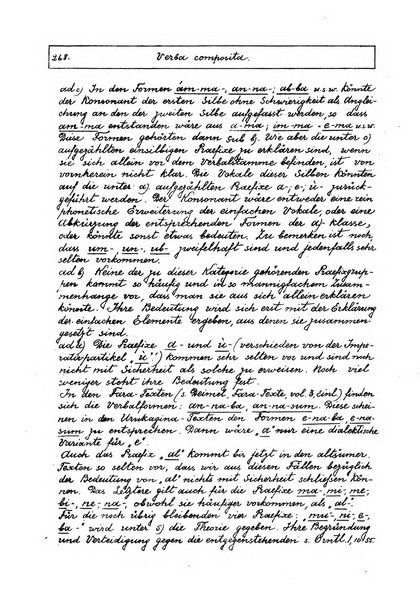 268. Verba composita.
ad c) In den Formen ám-ma, an-na; ab-ba u.s.w. könnte
der Konsonant der ersten Silbe ohne Schwierigkeit als Anglei-
chung an den der zweiten Silbe aufgefasst werden, so dass
am-ma entstanden wäre aus a-ma; im-ma - e-ma u.s.w.
Diese Formen gehörten dann sub b). Wie aber die unter c)
aufgezählten einsilbigen Praefixe zu erklären sind, wenn
sie sich allein vor dem Verbalstamme befinden, ist von
vornherein nicht klar. Die Vokale dieser Silben könnten
auf die unter a) aufgezählten Praefixe a-; e-; ù- zurück-
geführt werden. Der Konsonant wäre entweder eine rein
phonetische Erweiterung der einfachen Vokale, oder eine
Abkürzung der entsprechenden Formen der a)-Klasse,
oder könnte sonst etwas bedeuten. Zu bemerken ist noch,
dass um- un- ub- zweifelhaft sind und jedenfalls sehr
selten vorkommen.
ad b) Keine der zu dieser Kategorie gehörenden Praefixgrup-
pen kommt so häufig und in so mannigfachem Zusam-
menhange vor, dass man sie aus sich allein erklären
könnte. Ihre Bedeutung wird sich erst mit der Erklärung
der einfachen Elemente ergeben, aus denen sie zusammen-
gesetzt sind.
ad a) Die Praefixe a- und ù- (verschieden von der Impe-
rativpartikel "ù") kommen sehr selten vor und sind noch
nicht mit Sicherheit als solche zu erweisen. Noch viel
weniger steht ihre Bedeutung fest.
In den Fara-Texten (s. Deimel, Fara-Texte, vol. 3, Einl.) finden
sich die Verbalformen: an-na-ba, an-na-sum. Diese schei-
nen in den Urukagina-Texten den Formen e-na-ba e-na-
sum zu entsprechen. Dann wäre "a" nur eine dialektische
Variante für "e".
Auch das Praefix "al" kommt bis jetzt in den altsumer.
Texten so selten vor, dass wir aus diesen Fällen bezüglich
der Bedeutung von "al" nichts mit Sicherheit schließen kön-
nen. Das Letztere gilt auch für die Praefixe ma-; mi-; me-;
bi-, ne-; na-, obwohl sie häufiger vorkommen, als "al".
Für die noch übrig bleibenden vier Praefixe: "mu-, ni-, e-,
ba-" wird unter 5) die Theorie gegeben. Ihre Begründung
und Verteidigung gegen die entgegenstehenden s. Orntl. 1,